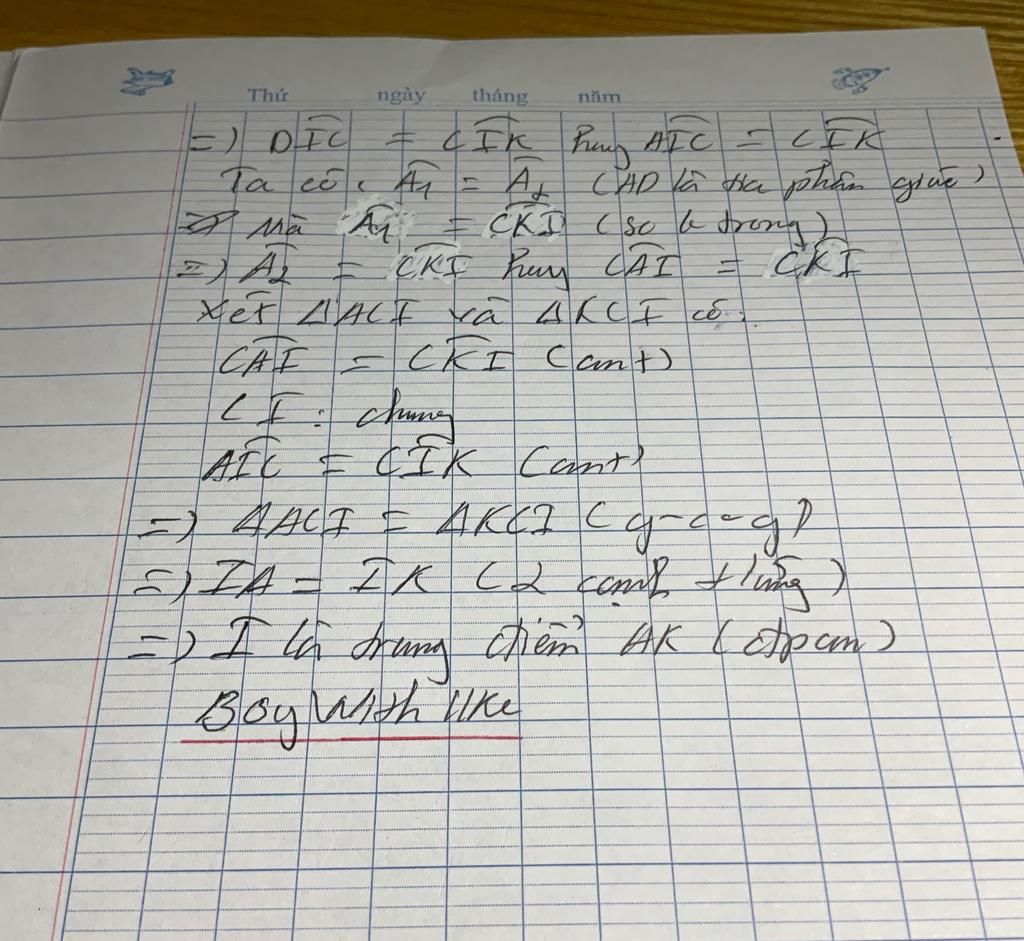 Thứ ngày tháng năm
=) DÎC = CÎK hay AÎC = CÎK
Ta có: Â1 = Â2 (AD là tia phân giác)
Mà Â1 = CK̂I (so le trong)
=) Â2 = CK̂I hay CÂI = CK̂I
Xét ΔACI và ΔKCI có:
CÂI = CK̂I (cmt)
CI: chung
AÎC = CÎK (cmt)
=) ΔACI = ΔKCI (g-c-g)
=) IA = IK (2 cạnh tứng)
=) I là trung điểm AK (đpcm)
Boy With like